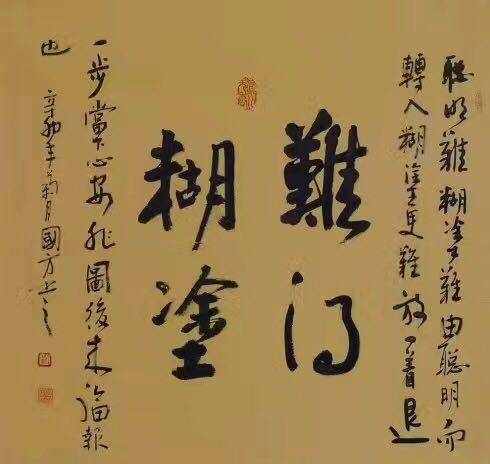 難得
糊塗
聰明難糊塗難由聰明而
轉入糊塗更難放一着退
一步當下心安非圖後來福報
也 辛卯年菊月國方